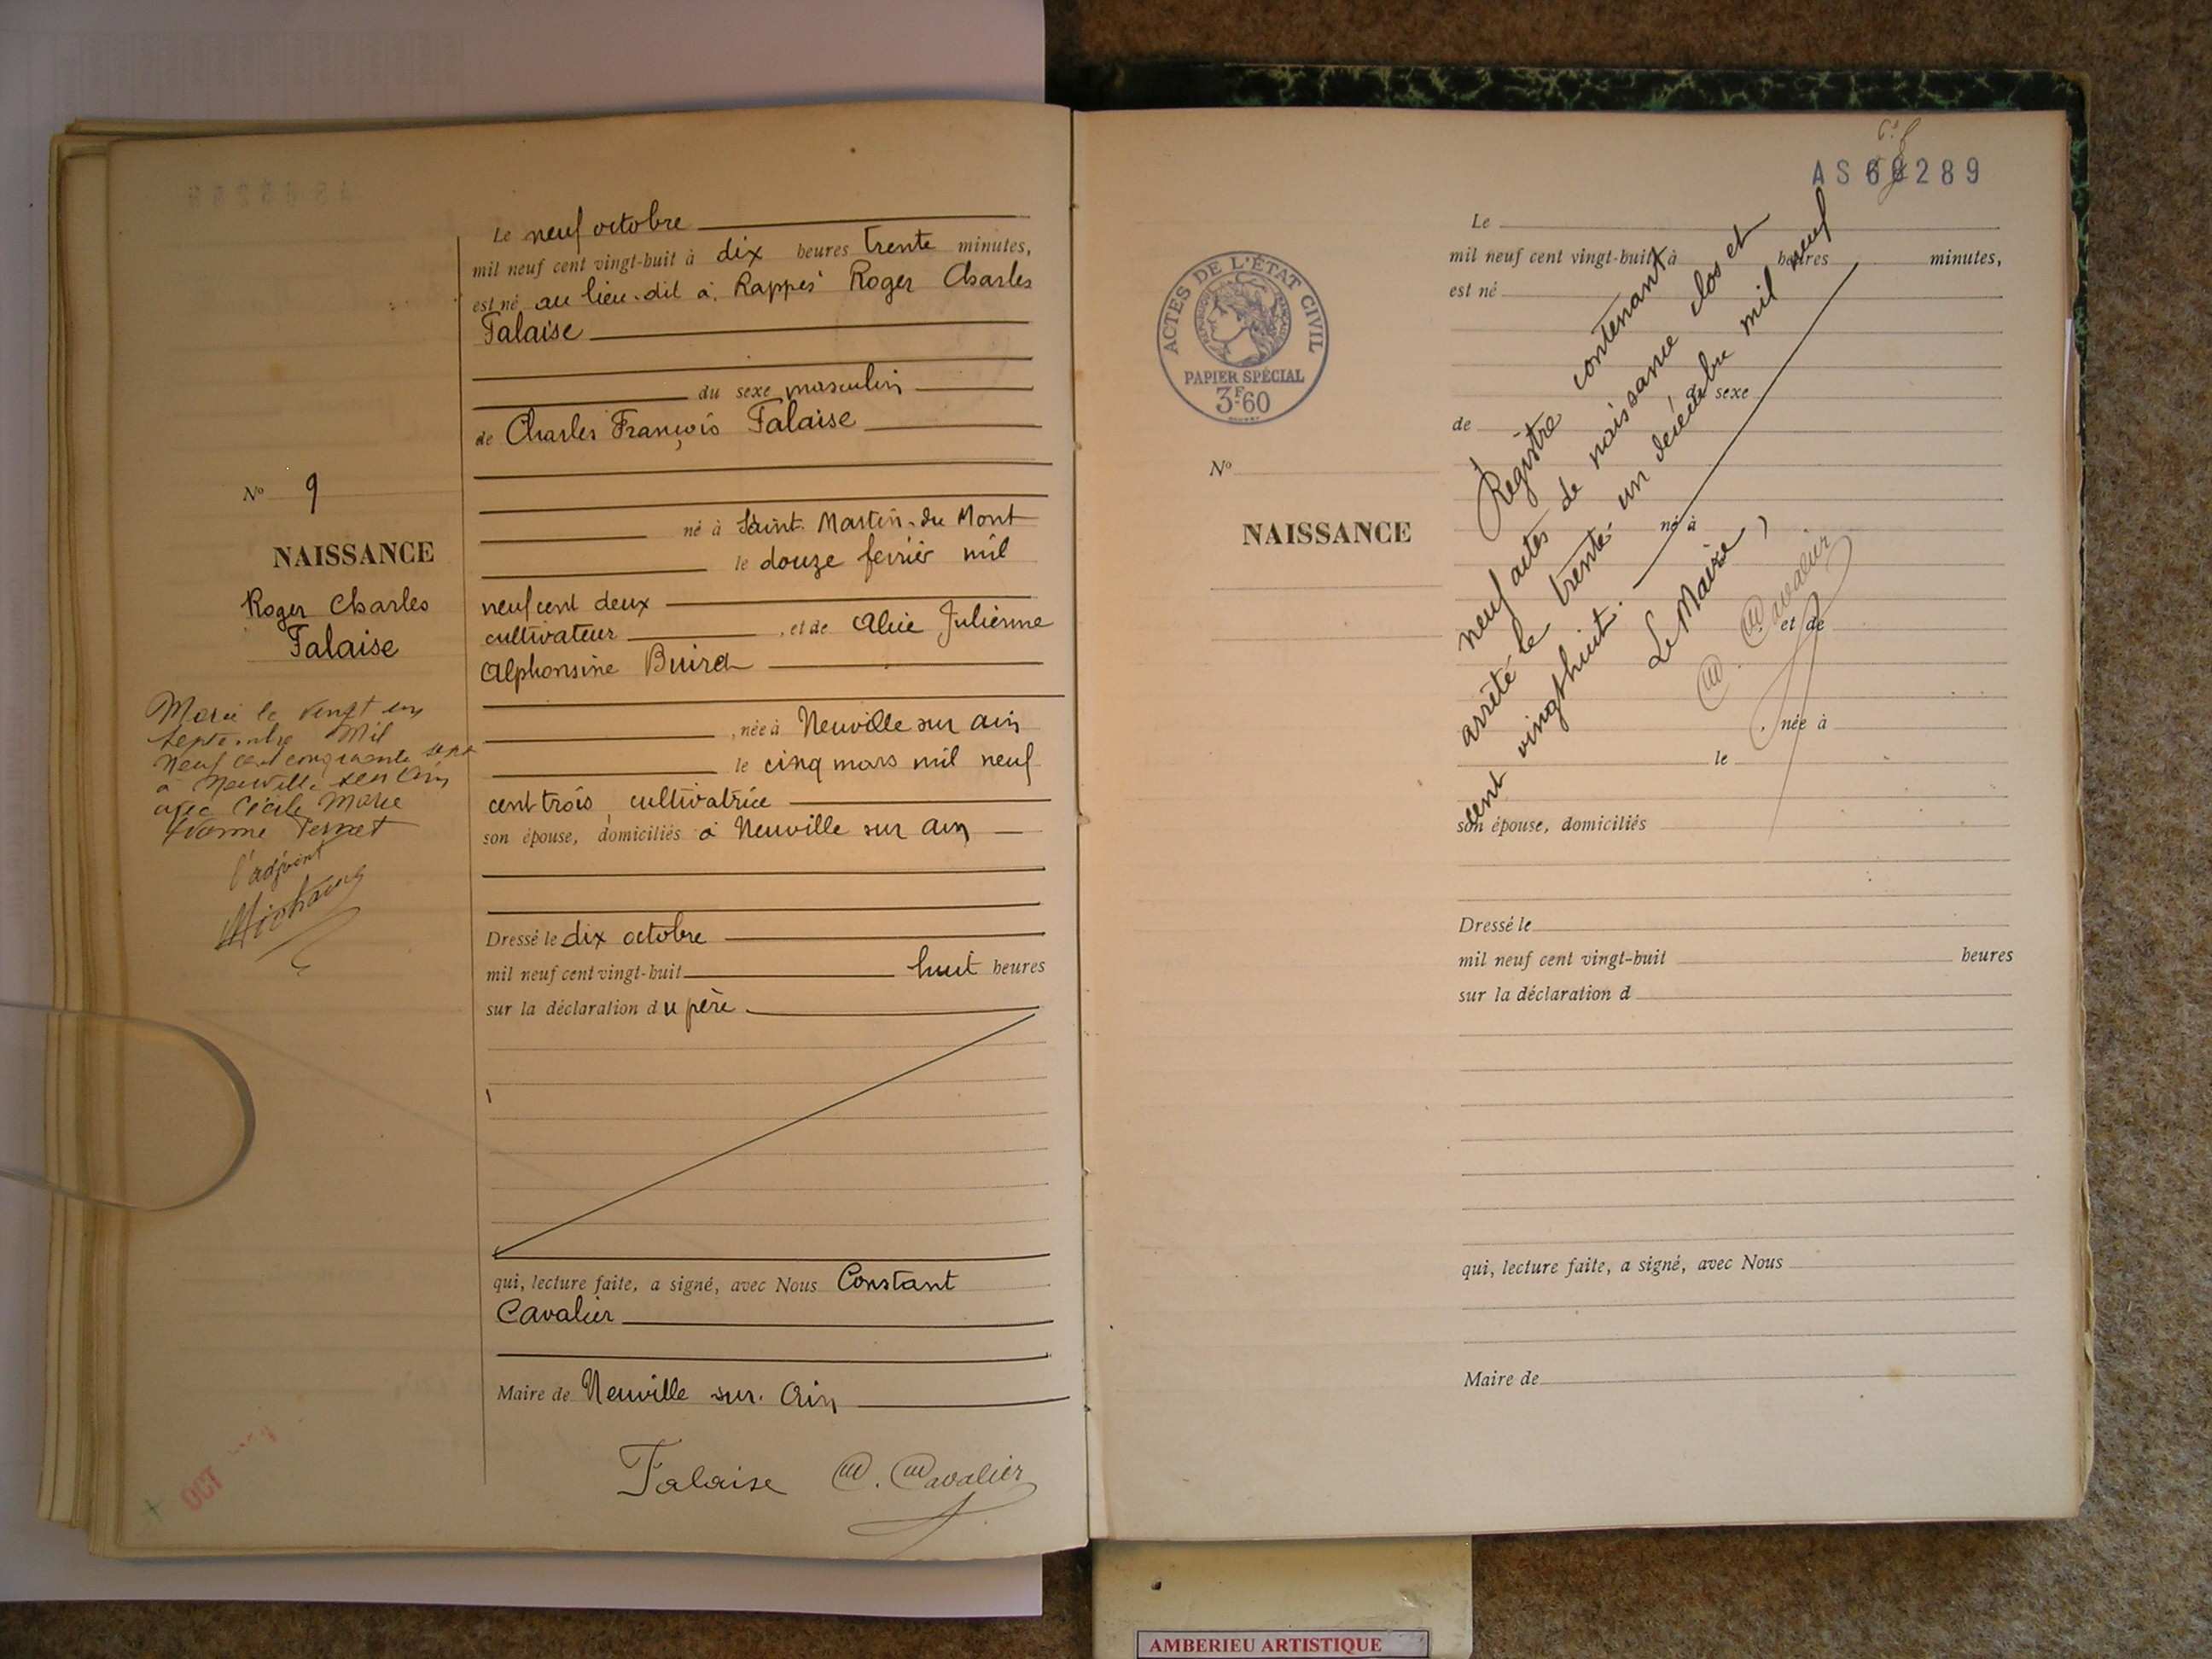 Le neuf octobre
mil neuf cent vingt-huit à dix heures trente minutes,
est né au lieu-dit à Rappes Roger Charles
Falaise
du sexe masculin
de Charles François Falaise
né à Saint-Martin-du Mont
le douze fevrier mil
neuf cent deux
cultivateur, et de Alice Julienne
Alphonsine Buird
, née à Neuville sur Ain
le cinq mars mil neuf
cent trois, cultivatrice
son épouse, domiciliés à Neuville sur Ain
Dressé le dix octobre
mil neuf cent vingt-huit huit heures
sur la déclaration du père
qui, lecture faite, a signé, avec Nous Constant
Cavalier
Maire de Neuville sur Ain
Falaise C. Cavalier
No 9
NAISSANCE
Roger Charles
Falaise
Marié le vingt un
septembre Mil
neuf cent cinquante sept
à Neuville sur Ain
avec Cécile Marie
Yvonne
l'adjoint
OCT
AS 289
ACTES DE L'ÉTAT CIVIL
PAPIER SPÉCIAL
3F60
No
NAISSANCE
Le
mil neuf cent vingt-huit à heures minutes,
est né
du sexe
de
né à
, et de
, née à
le
son épouse, domiciliés
Dressé le
mil neuf cent vingt-huit heures
sur la déclaration d
qui, lecture faite, a signé, avec Nous
Maire de
Régistre contenant
neuf actes de naissance clos et
arrêté le trente un décembre mil neuf
cent vingt huit.
Le Maire,
C. Cavalier
AMBERIEU ARTISTIQUE